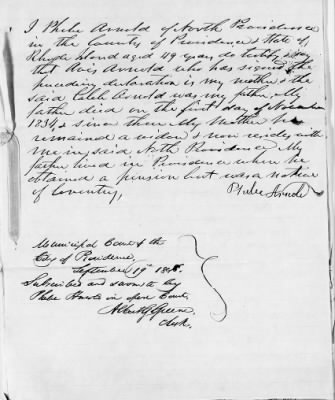 I Phebe Arnold of North Providence
in the County of Providence & State of
Rhode Island aged 49 years do testify & say
that Lois Arnold who has signed the
preceding declaration is my mother & the
said Caleb Arnold was my father. My
father died on the first day of November
183 & since then My Mother has
remained a widow & now resides with
me in said North Providence. My
father lived in Providence when he
obtained a pension but was a native
of Coventry,
Phebe Arnold
Municipal Court of the
City of Providence,
September 19th 18
Subscribed and sworn to by
Phebe Arnold in open Court.
Albert G. Greene
Clerk.